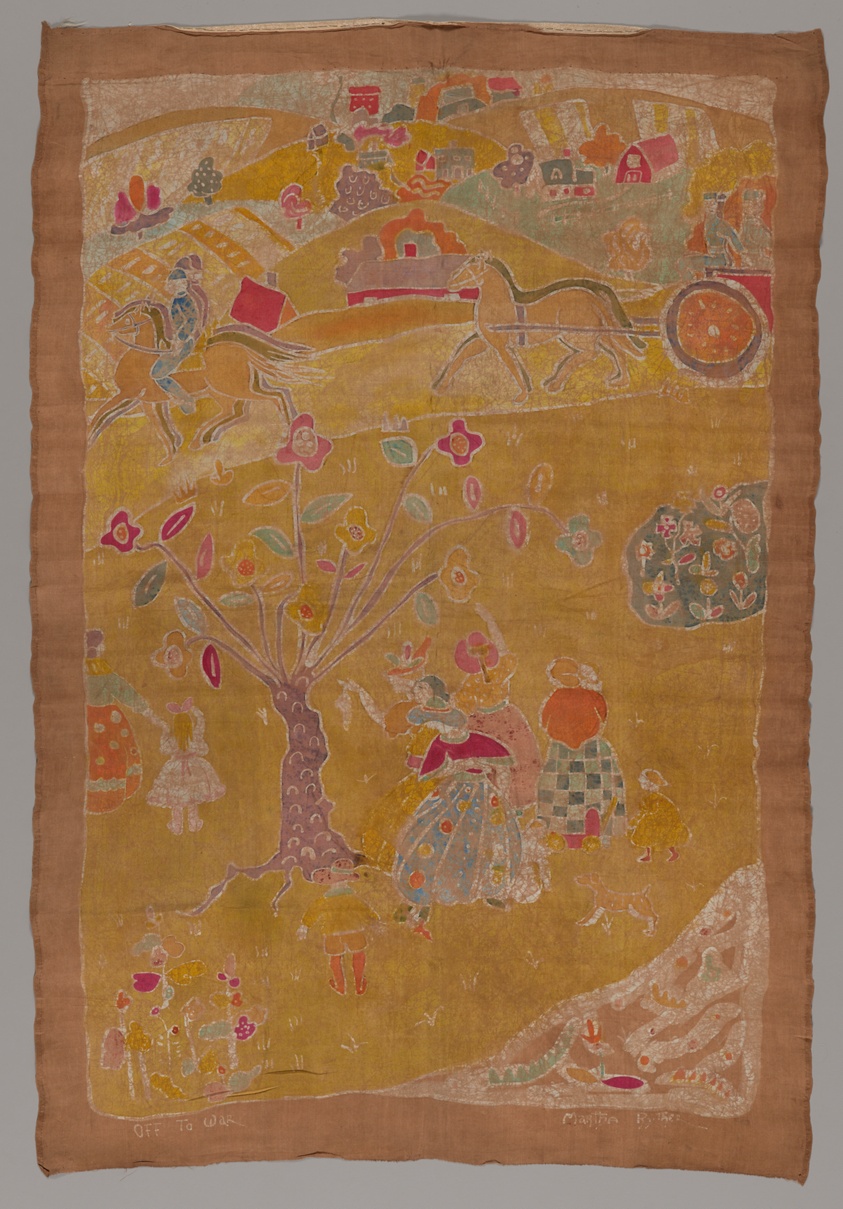 OFF TO WAR
Martha Ryther